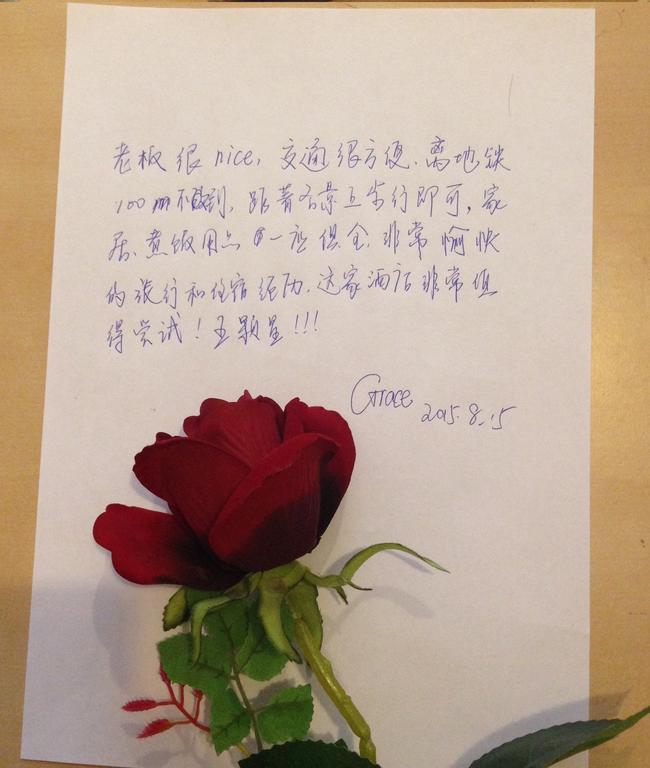 老板很nice，交通很方便、离地铁
100m不到，距著名景点步行即可，家
居、煮饭用品一应俱全，非常愉快
的旅行和住宿经历，这家酒店非常值
得尝试！五颗星！！！
Grace
2015.8.15